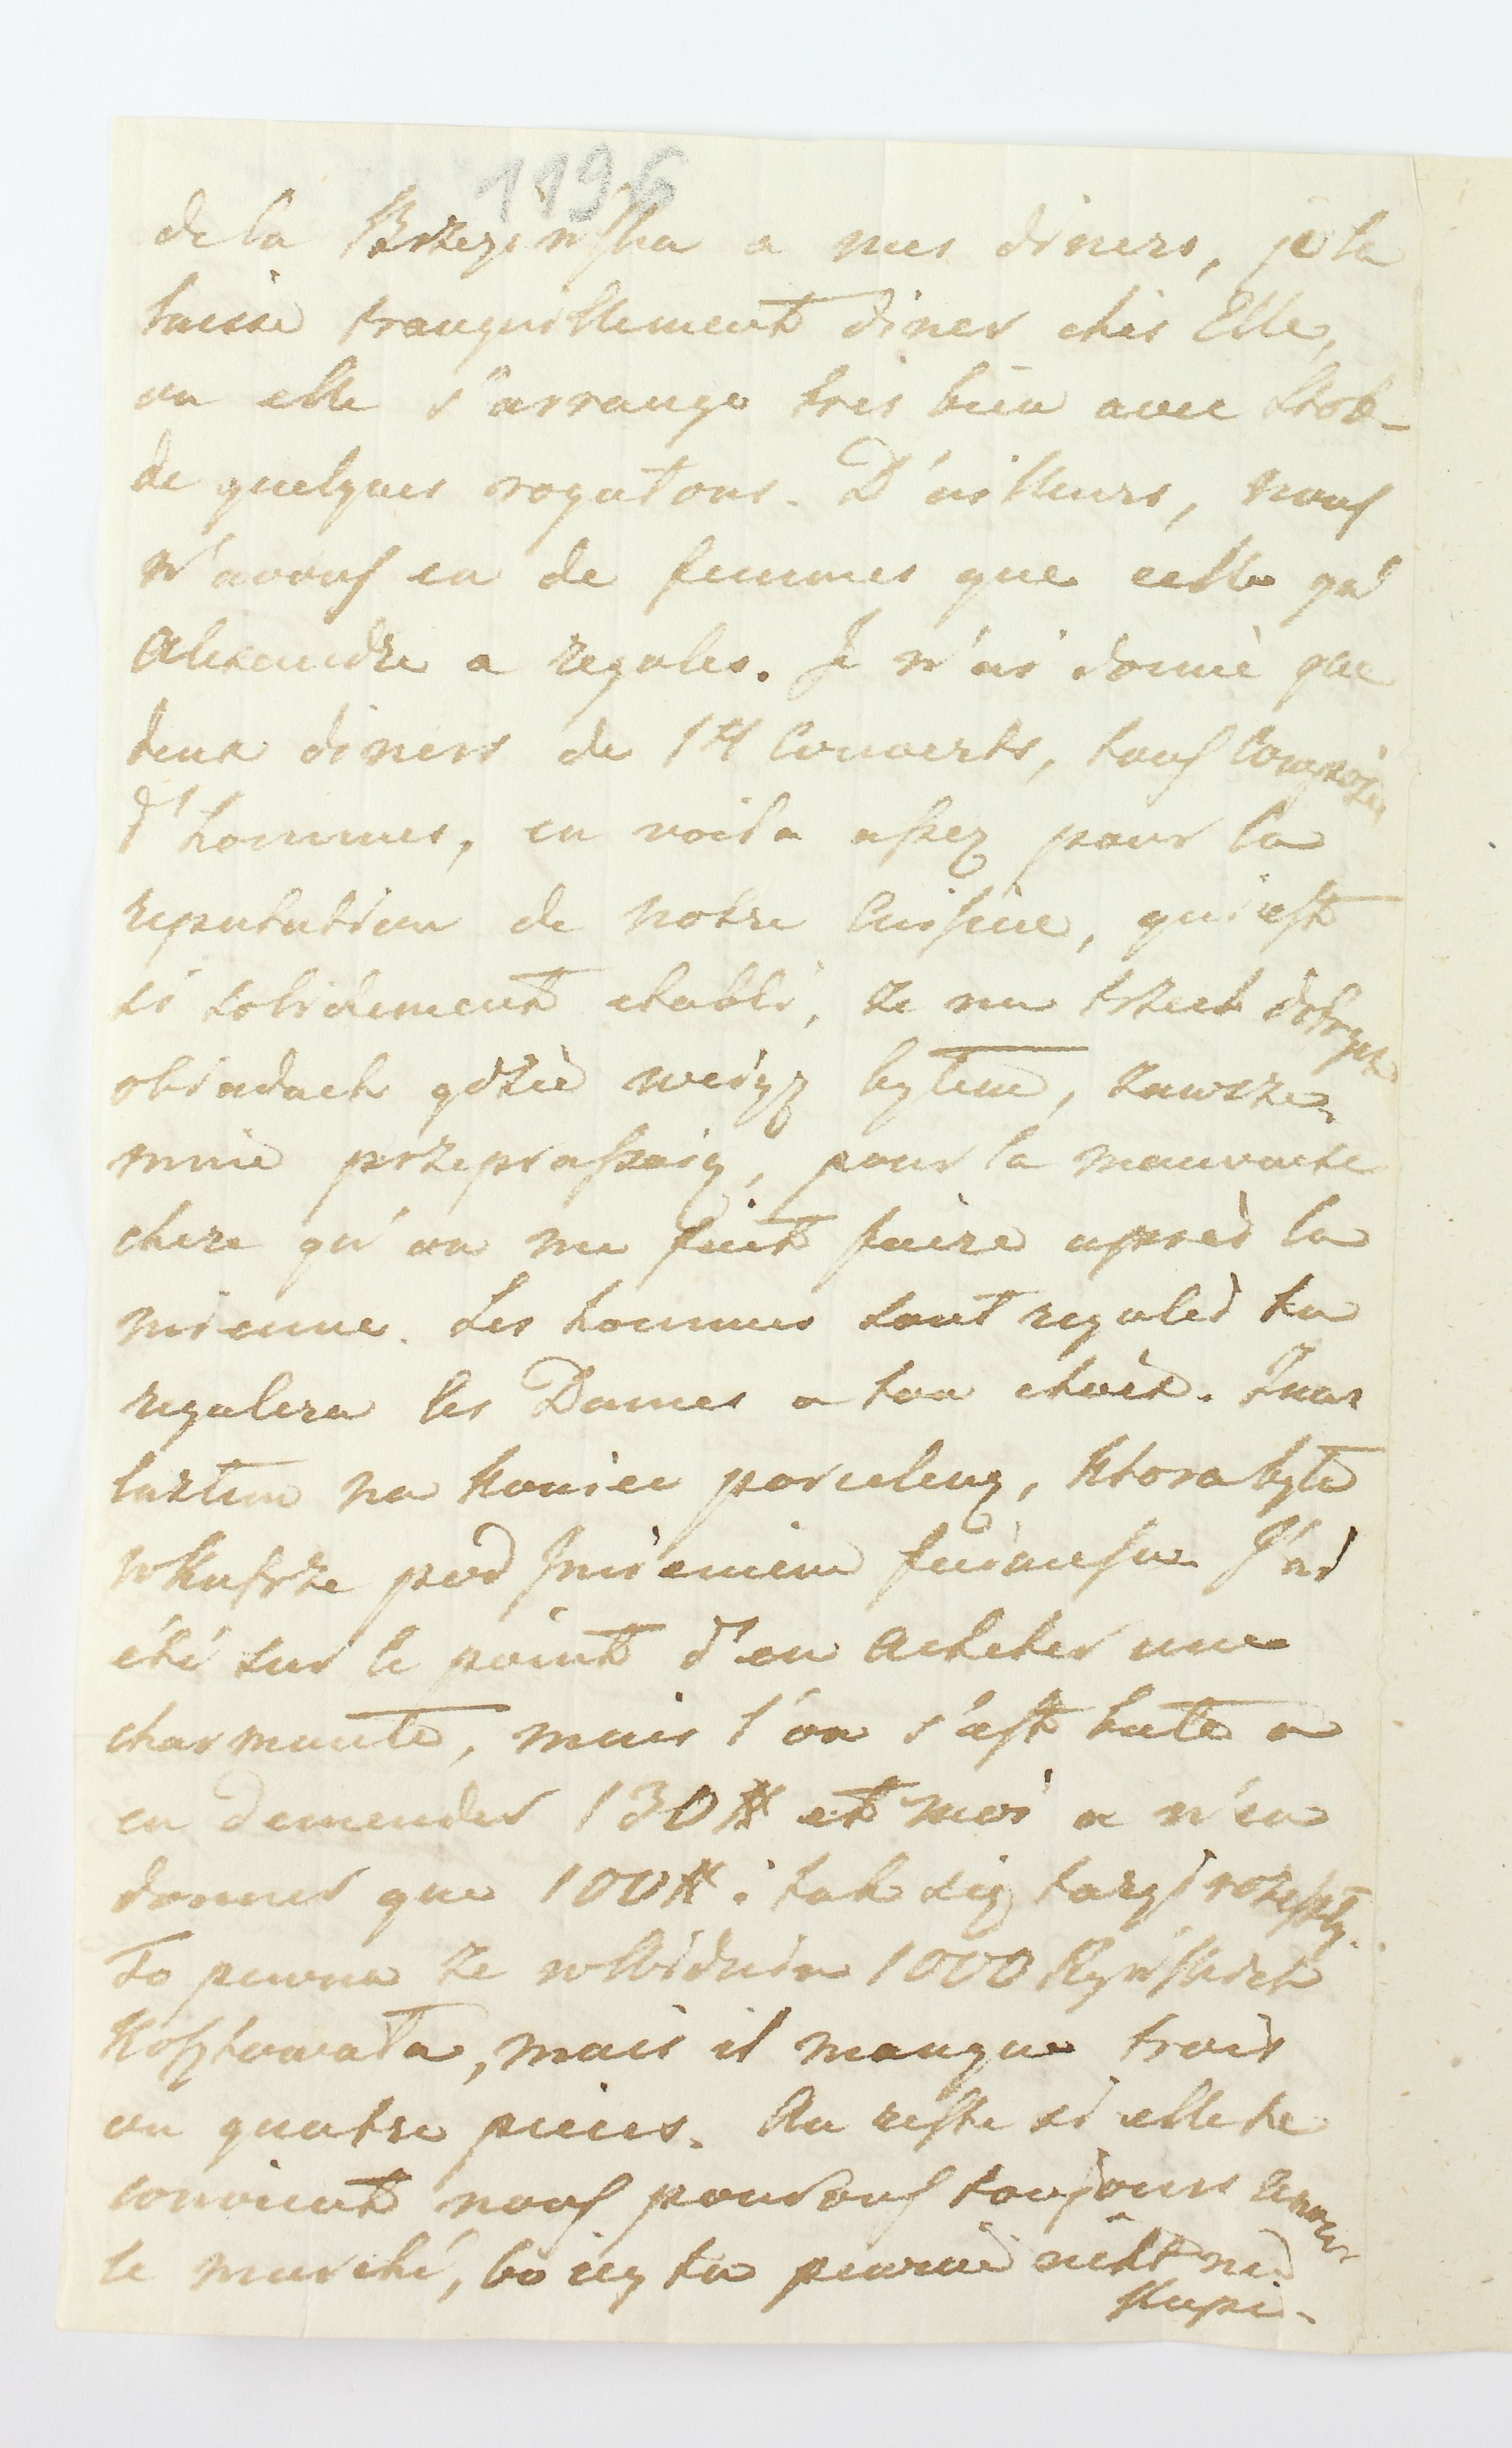 1196
de la Brzezinska a mes diners, je la
laisse tranquillement diner chés Elle,
ou elle s'arrange tres bien avec Stok-
de quelques rogatons. D'ailleurs, nous
n'avons eu de femmes que celle qu'
Alexandre a regales. Je n'ai donné que
deux diners de 14 Couverts, tous composés
d'hommes, en voila assez pour la
reputation de notre Cuisine, qui est
si solidement etabli, ze na trzech dobrych
obiadach gdzie weizę bytem, zawsze
mnie przepraszaią, pour la mauvaise
chere qu'on me fait faire après la
mienne. Les hommes sont regalés tu
regalera les Dames a ton choix. Znas
laztem na koniec porcelenę, ktora była
w Kufrze pod Imieniem J'ai
été sur le point d'en acheter une
charmante, mais l'on s'est buté a
en demander 130# et moi a n'en
donner que 100#. i tak się targi rozeszły.
To pewna ze w Widniu 1000 Ryńskich
Kosztowała, mais il manque trois
ou quatre pieces. Au reste si elle te
convient nous pouvons toujours
le marché, bo iey tu pewnie nikt nie
kupi.